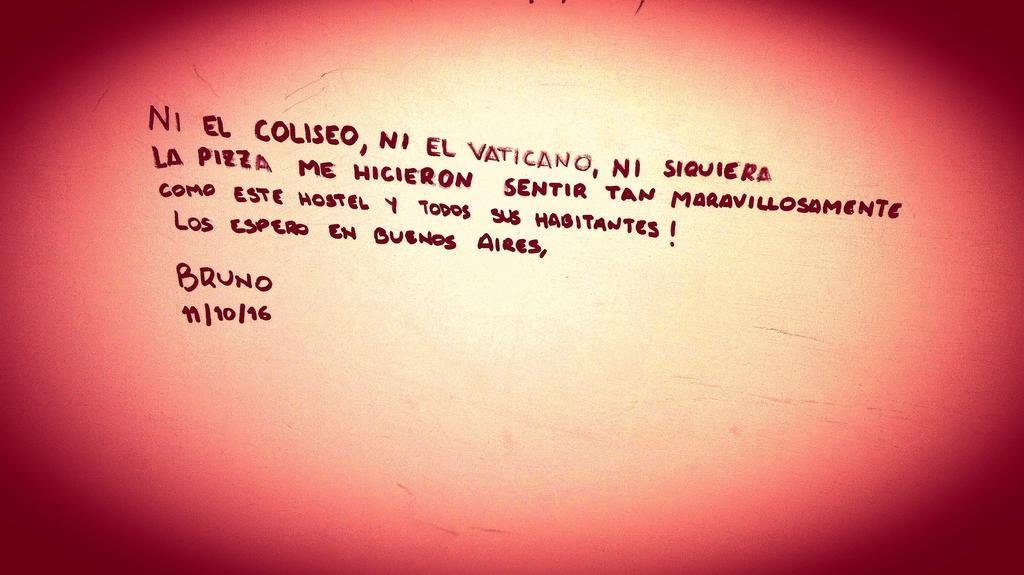 NI EL COLISEO, NI EL VATICANO, NI SIQUIERA
LA PIZZA ME HICIERON SENTIR TAN MARAVILLOSAMENTE
COMO ESTE HOSTEL Y TODOS SUS HABITANTES!
LOS ESPERO EN BUENOS AIRES,
BRUNO
11/10/16